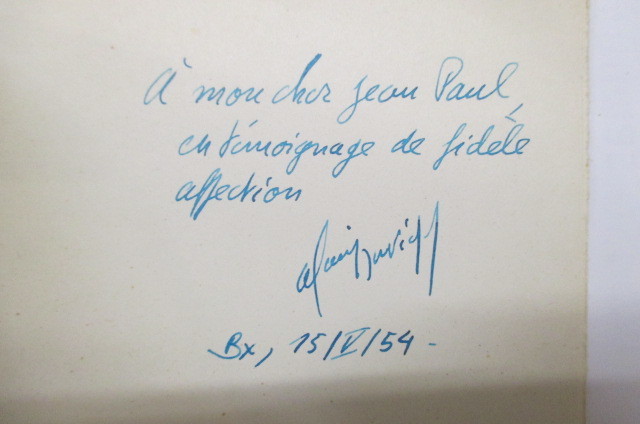 À mon cher Jean Paul,
en témoignage de fidèle
affection
Bx, 15/V/54 -